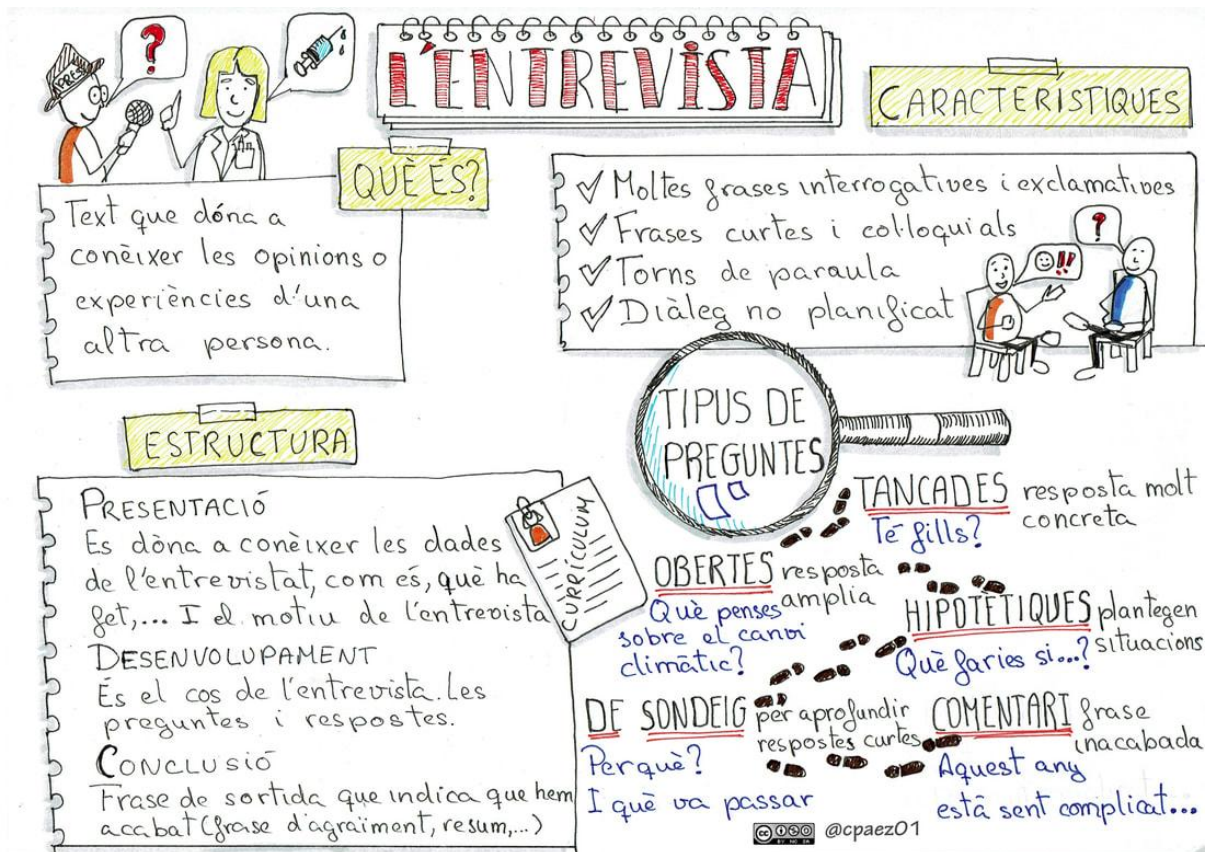 PRESS
?
L'ENTREVISTA
QUÈ ÉS?
Text que dóna a
conèixer les opinions o
experiències d'una
altra persona.
CARACTERISTIQUES
Moltes frases interrogatives i exclamatives
Frases curtes i col·loquials
Torns de paraula
Diàleg no planificat
!!
?
ESTRUCTURA
PRESENTACIÓ
Es dòna a conèixer les dades
de l'entrevistat, com és, què ha
fet,... I el motiu de l'entrevista
DESENVOLUPAMENT
És el cos de l'entrevista. Les
preguntes i respostes.
CONCLUSIÓ
Frase de sortida que indica que hem
acabat (frase d'agraïment, resum,...)
CURRÍCULUM
TIPUS DE
PREGUNTES
TANCADES resposta molt
concreta
Té fills?
OBERTES resposta
amplia
Què penses
sobre el canvi
climàtic?
HIPOTETIQUES plantegen
situacions
Què faries si...?
DE SONDEIG per aprofundir
respostes curtes
Perquè?
I què va passar
COMENTARI frase
inacabada
Aquest any
està sent complicat...
cc BY NC SA @cpaez01